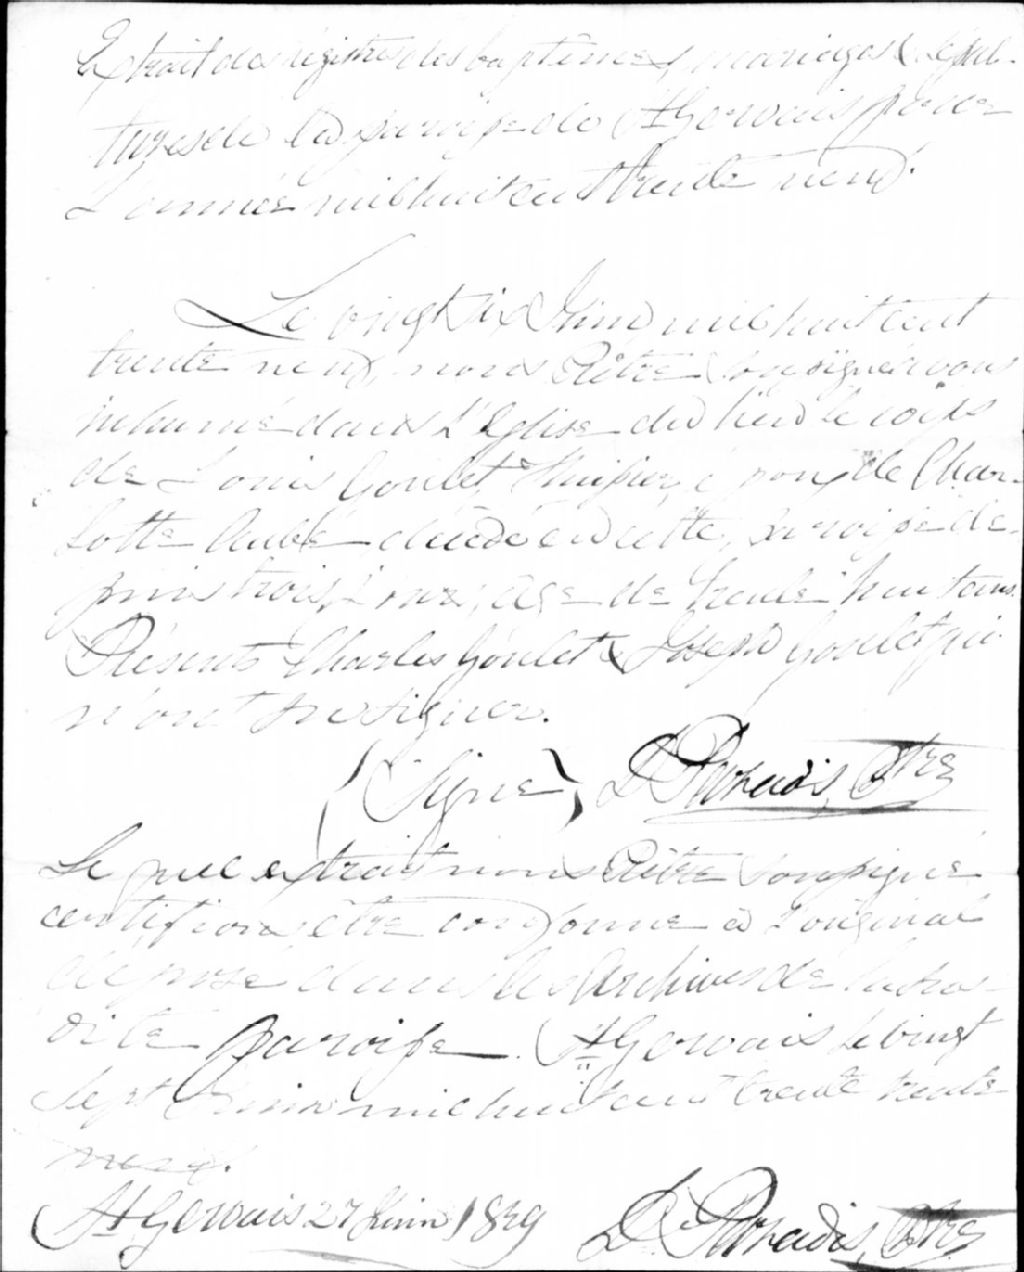 Extrait des régitres des baptêmes, mariages & sépul-
tures de la paroisse de St Gervais pour
L'année mil huit cent trente neuf.
Le vingt six Juin mil huit cent
trente neuf, nous Prêtre soussigné avons
inhumé dans L'Eglise du lieu le corps
de Louis Goulet, Huissier, époux de Char-
lotte Aubé décédé en cette paroisse de-
puis trois jours, âgé de trente huit ans.
Présents Charles Goulet & Joseph Goulet qui
n'ont su signer.
(Signé) D Paradis, Ptre
Le quel extrait nous Prêtre soussigné
certifions être conforme à L'original
déposé dans les Archives de la sus-
dite paroisse. St Gervais le vingt
sept Juin mil huit cent trente trente
neuf.
St Gervais 27 Juin 1839 D. Paradis, Ptre